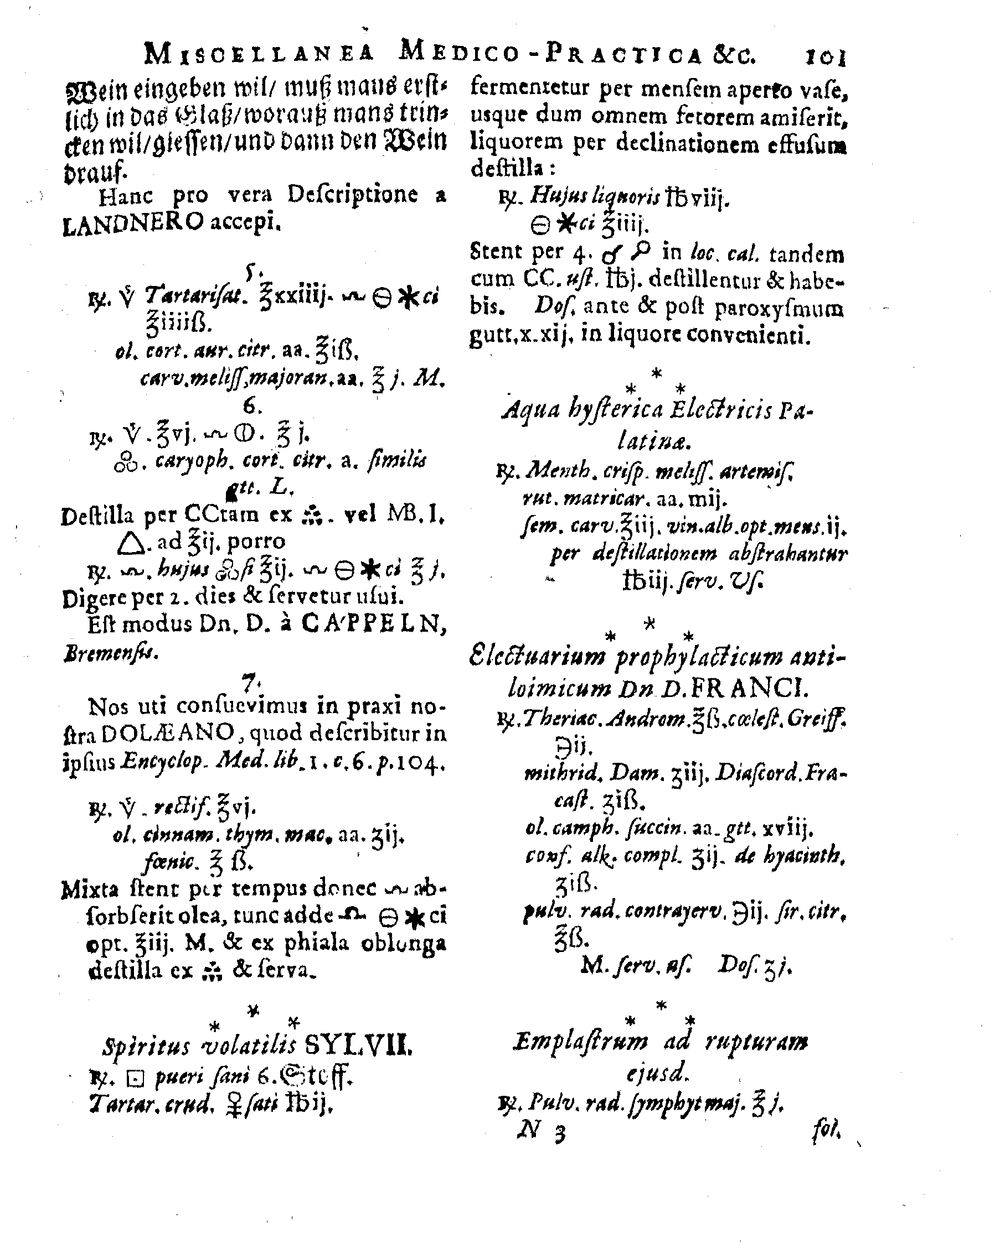 MISCELLANEA MEDICO-PRACTICA &c. 101
Wein eingeben wil/ muß mans erst-
lich in das Glaß/worauß mans trin-
cken wil/giessen/und dann den Wein
drauf.
Hanc pro vera Deſcriptione a
LANDNERO accepi.
5.
℞. V̇ Tartariſat. ℥xxiiij. 🝞 🜔 ✱ci
℥iiiiß.
ol. cort. aur. citr. aa. ℥iß.
carv.meliſſ.majoran.aa. ℥ j. M.
6.
℞. V̇. ℥vj. 🝞 🜕. ℥ j.
. caryoph. cort. citr. a. ſimilis
gtt. L.
Deſtilla per CCtam ex . vel MB. I.
△. ad ℥ij. porro
℞. 🝞. hujus ſi ℥ij. 🝞 🜔 ✱ci ℥ j.
Digere per 2. dies & ſervetur uſui.
Eſt modus Dn. D. à CAPPELN,
Bremenſis.
7.
Nos uti conſuevimus in praxi no-
ſtra DOLÆANO, quod deſcribitur in
ipſius Encyclop. Med. lib. 1. c. 6. p. 104.
℞. V̇. rectiſ. ℥vj.
ol. cinnam. thym. mac. aa. ʒij.
fœnic. ℥ ß.
Mixta ſtent per tempus donec 🝞 ab-
ſorbſerit olea, tunc adde 🜔 ✱ci
opt. ℥iij. M. & ex phiala oblonga
deſtilla ex & ſerva.
* * *
Spiritus volatilis SYLVII.
℞. ⊡ pueri ſani 6. Stoff.
Tartar. crud. ♀ſati ℔ij.
fermentetur per menſem aperto vaſe,
usque dum omnem fetorem amiſerit,
liquorem per declinationem effuſum
deſtilla :
℞. Hujus liquoris ℔viij.
🜔 ✱ci ℥iiij.
Stent per 4. in loc. cal. tandem
cum CC. uſt. ℔j. deſtillentur & habe-
bis. Doſ. ante & poſt paroxyſmum
gutt.x.xij. in liquore convenienti.
* * *
Aqua hyſterica Electricis Pa-
latinæ.
℞. Menth. criſp. meliſſ. artemiſ.
rut. matricar. aa. mij.
ſem. carv.℥iij. vin.alb.opt.mens.ij.
per deſtillationem abſtrahantur
℔iij. ſerv. Uſ.
* * *
Electuarium prophylacticum anti-
loimicum Dn D. FRANCI.
℞. Theriac. Androm.℥ß.cœleſt.Greiff.
℈ij.
mithrid. Dam. ʒiij. Diaſcord. Fra-
caſt. ʒiß.
ol. camph. ſuccin. aa. gtt. xviij.
conf. alk. compl. ʒij. de hyacinth.
ʒiß.
pulv. rad. contrayerv. ℈ij. ſir. citr.
℥ß.
M. ſerv. aſ. Doſ. ʒj.
* * *
Emplaſtrum ad rupturam
ejusd.
℞. Pulv. rad. ſymphyt maj. ℥ j.
N 3 fol.